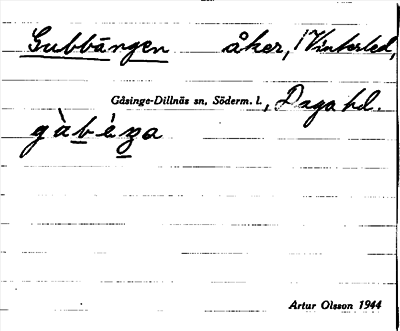 Gubbängen åker, Vinterled,
Gåsinge-Dillnäs sn, Söderm. l., Daga hd.
gàbéŋa
Artur Olsson 1944